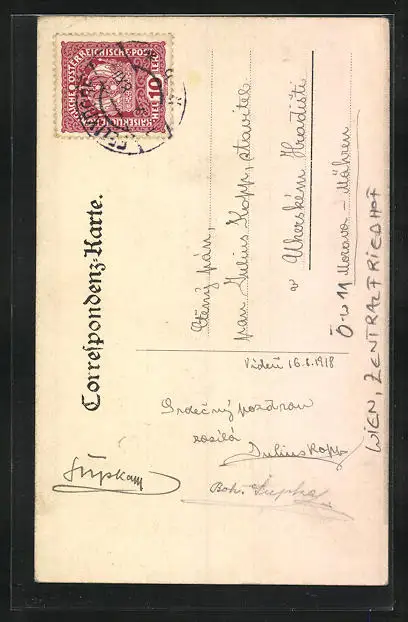 KAISERLICHE KÖNIGLICHE ÖSTERREICHISCHE POST
10 HELLER
FELDPOST
Correspondenz-Karte.
Ctěný pán,
pan Julius Kopp, stavitel
v
Uherském Hradišti
Morava - Mähren
Ö-W 11
WIEN, ZENTRALFRIEDHOF
Videň 16.8.1918
Srdečný pozdrav
zasílá
Julius Kopp
Boh.